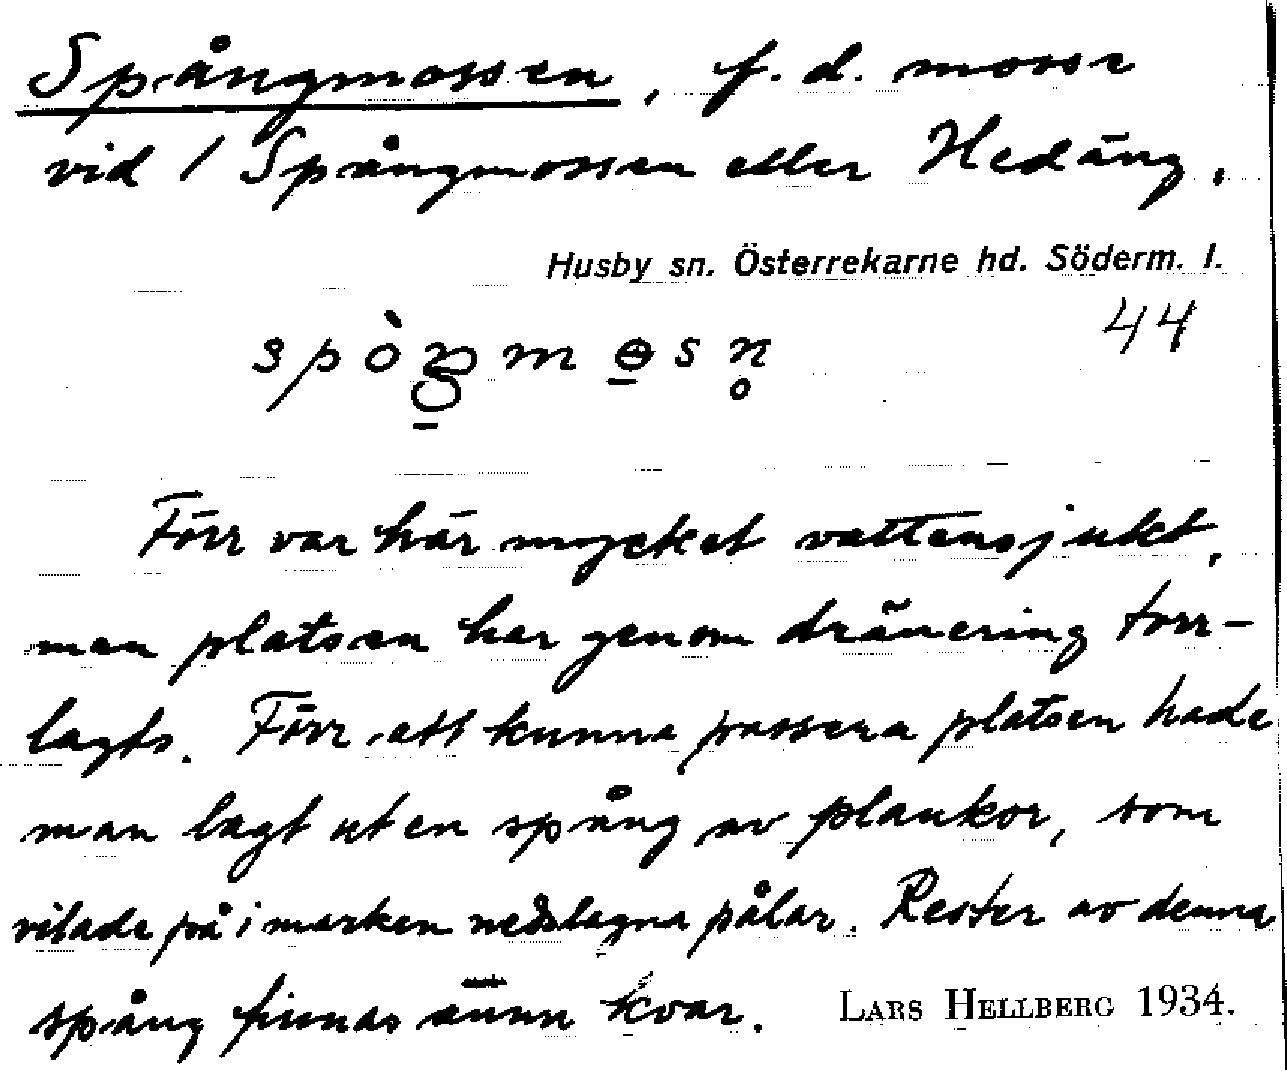 Spångmossen, f.d. mosse
vid 1 Spångmossen eller Hedäng.
Husby sn. Österrekarne hd. Söderm. l.
44
Förr var här mycket vattensjukt,
men platsen har genom dränering torr-
lagts. Förr att kunna passera platsen hade
man lagt ut en spång av plankor, som
vilade på i marken nedslagna pålar. Rester av denna
spång finnas ännu kvar. LARS HELLBERG 1934.